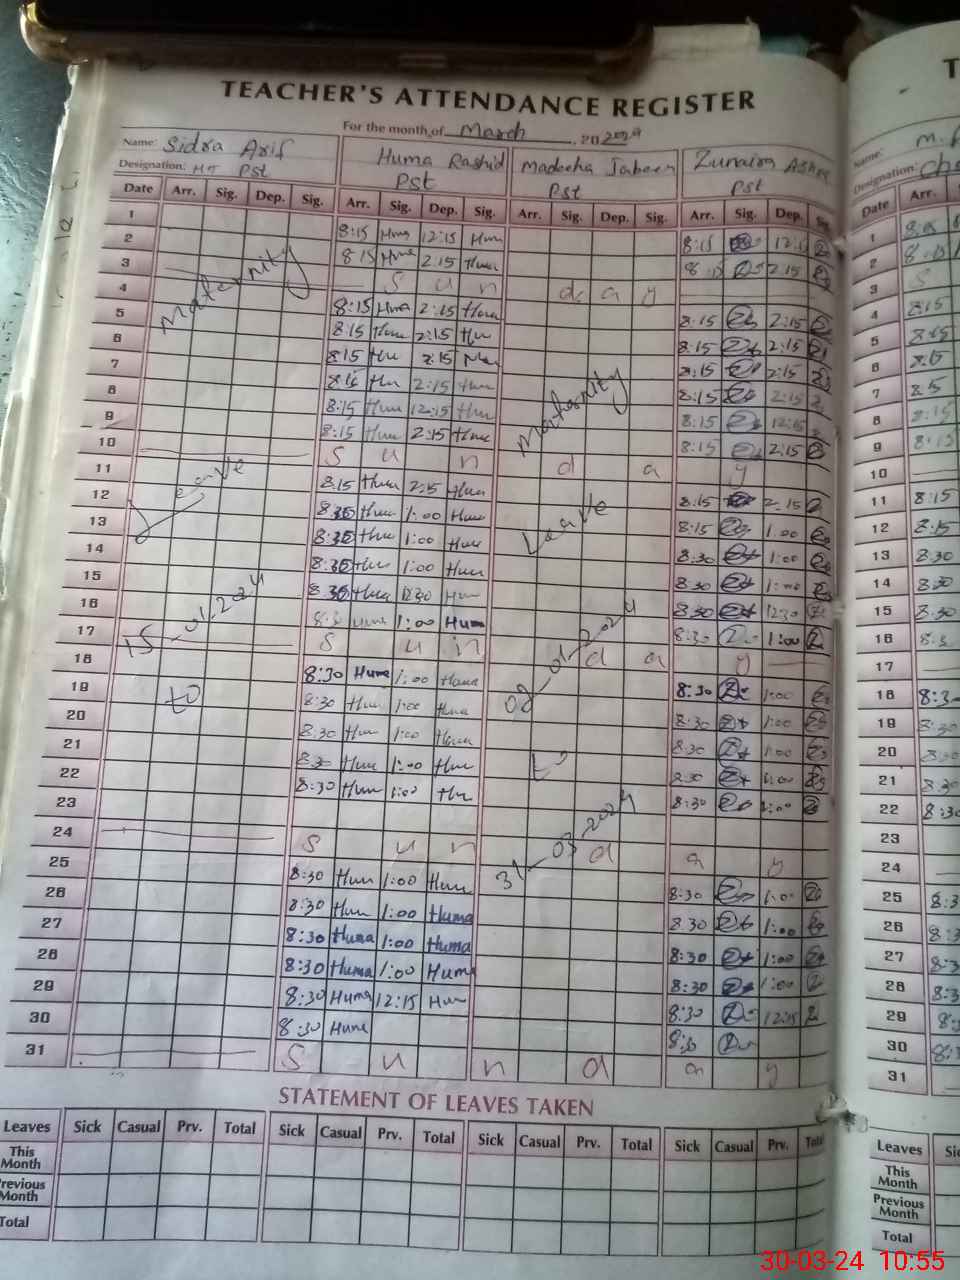 TEACHER'S ATTENDANCE REGISTER
For the month of March, 2024
Name: Sidra Arif Huma Rashid Madeeha Jabeen Zunaira
Designation: PST PST PST PST
Date Arr. Sig. Dep. Sig. Arr. Sig. Dep. Sig. Arr. Sig. Dep. Sig. Arr. Sig. Dep. Sig.
1 8:15 Hum 12:15 Hum 8:15 12:15
2 8:15 Hum 2:15 Huma 8:15 2:15
3 S u n d a y
4 8:15 Huma 2:15 Huma 8:15 2:15
5 8:15 Hum 2:15 Hu 8:15 2:15
6 8:15 Hu 2:15 8:15 2:15
7 8:15 Hu 2:15 Hum 8:15 2:15
8 8:15 Hum 12:15 Hu 8:15 12:15
9 8:15 Hum 2:15 Hum 8:15 2:15
10 S u n d a y
11 8:15 Hum 2:15 Hum 8:15 2:15
12 Hum 1:00 Hum 8:15 1:00
13 8:30 Hum 1:00 Hum 8:30 1:00
14 8:30 Hum 1:00 Hum 8:30 1:00
15 8:30 Hum 12:30 Hum 8:30 12:30
16 8:30 Huma 1:00 Hum 8:30 1:00
17 S u n d a y
18 8:30 Huma 1:00 Huma 8:30 1:00
19 8:30 Hum 1:00 Huma 8:30 1:00
20 8:30 Hum 1:00 Hum 8:30 1:00
21 8:30 Hum 1:00 Hum 8:30 1:00
22 8:30 Hum 1:00 Hu 8:30 1:00
23
24 S u n d a y
25 8:30 Hum 1:00 Hum 8:30 1:00
26 8:30 Hum 1:00 Huma 8:30 1:00
27 8:30 Huma 1:00 Huma 8:30 1:00
28 8:30 Huma 1:00 Huma 8:30 1:00
29 8:30 Huma 12:15 Hum 8:30 12:15
30 8:30 Hume 8:30
31 S u n d a y
Maternity
Leave
15-01-2024
to
Maternity
Leave
to
31-03-2024
STATEMENT OF LEAVES TAKEN
Leaves Sick Casual Prv. Total Sick Casual Prv. Total Sick Casual Prv. Total Sick Casual Prv. Total
This Month
Previous Month
Total
Name:
Designation:
Date Arr.
1 8:15
2 8:15
3 S
4 8:15
5 8:15
6 8:15
7 8:15
8 8:15
9 8:15
10
11 8:15
12 8:15
13 8:30
14 8:30
15 8:30
16 8:3
17
18 8:3
19 8:30
20 8:30
21 8:30
22 8:30
23
24
25 8:3
26 8:3
27 8:3
28 8:3
29 8:
30 8:3
31
Leaves
This Month
Previous Month
Total
30-03-24 10:55